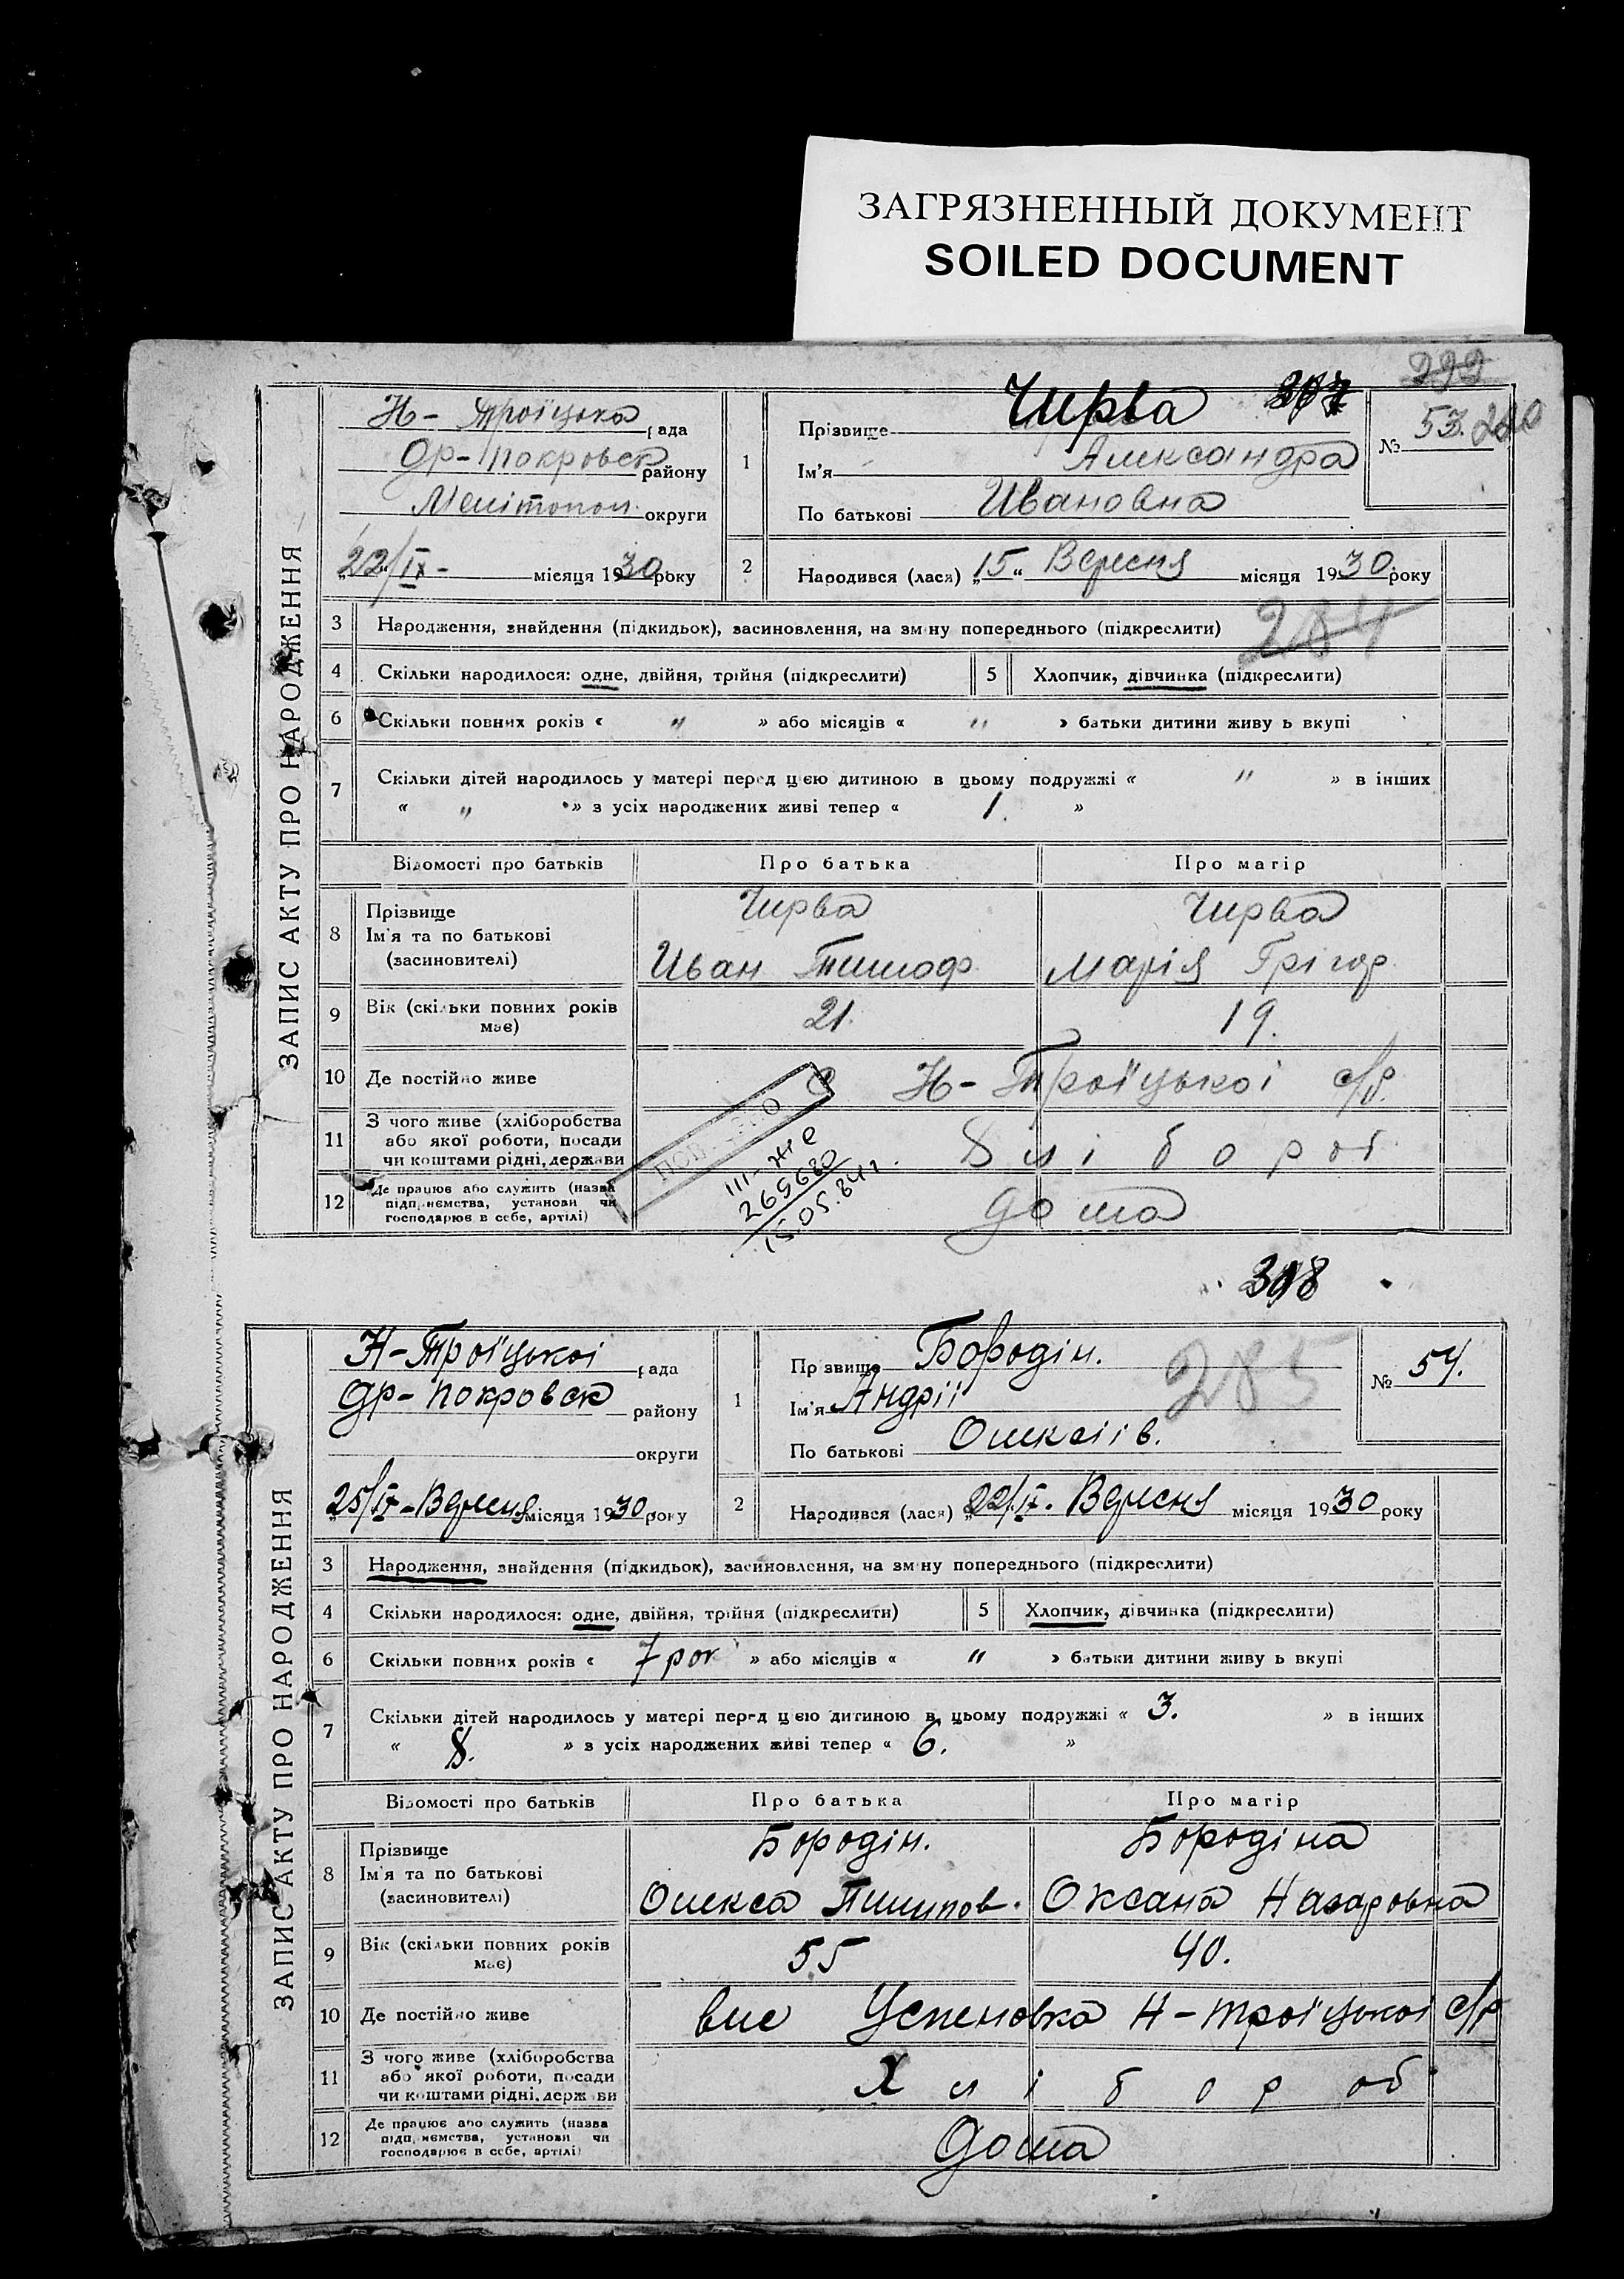 ЗАГРЯЗНЕННЫЙ ДОКУМЕНТ
SOILED DOCUMENT
299
ЗАПИС АКТУ ПРО НАРОДЖЕННЯ
Н- Троїцька рада
Др-Покровск району
Мелітопол. округи
„22/IX- місяця 1930 року
1
Прізвище Чирва 307
Ім'я Александра
По батькові Ивановна
№ 53.
2
Народився (лася) „15“ Вересня місяця 1930 року
3 Народження, знайдення (підкидьок), засиновлення, на зміну попереднього (підкреслити)
284
4 Скільки народилося: одне, двійня, трійня (підкреслити)
5 Хлопчик, дівчинка (підкреслити)
6 Скільки повних років « " » або місяців « " » батьки дитини живуть вкупі
7 Скільки дітей народилось у матері перед цією дитиною в цьому подружжі « " » в інших
« " » з усіх народжених живі тепер « 1. »
Відомості про батьків Про батька Про матір
8 Прізвище
Ім'я та по батькові
(засиновителі)
Чирва
Иван Тимоф.
Чирва
Марія Грігор.
9 Вік (скільки повних років має) 21. 19.
10 Де постійно живе Н-Троїцької с/р.
11 З чого живе (хліборобства
або якої роботи, посади
чи коштами рідні, держави
Хлібороб
12 Де працює або служить (назва
підприємства, установи чи
господарює в себе, артілі)
дома
III-ЖС
265680
15.05.84
308
ЗАПИС АКТУ ПРО НАРОДЖЕННЯ
Н-Троїцькоі рада
Др-Покровск району
округи
„25/IX-Вересня місяця 1930 року
1
Прізвище Бородін.
Ім'я Андрії
По батькові Олексіів.
285
№ 54.
2
Народився (лася) „22/IX. Вересня місяця 1930 року
3 Народження, знайдення (підкидьок), засиновлення, на зміну попереднього (підкреслити)
4 Скільки народилося: одне, двійня, трійня (підкреслити)
5 Хлопчик, дівчинка (підкреслити)
6 Скільки повних років « 7 рок » або місяців « " » батьки дитини живуть вкупі
7 Скільки дітей народилось у матері перед цією дитиною в цьому подружжі « 3. » в інших
« 8. » з усіх народжених живі тепер « 6. »
Відомості про батьків Про батька Про матір
8 Прізвище
Ім'я та по батькові
(засиновителі)
Бородін.
Олекса Пилипов.
Бородіна
Оксана Назаровна
9 Вік (скільки повних років має) 55 40.
10 Де постійно живе вис Успеновка Н-Троїцькоі с/р
11 З чого живе (хліборобства
або якої роботи, посади
чи коштами рідні, держави
Хлібороб
12 Де працює або служить (назва
підприємства, установи чи
господарює в себе, артілі)
Дома